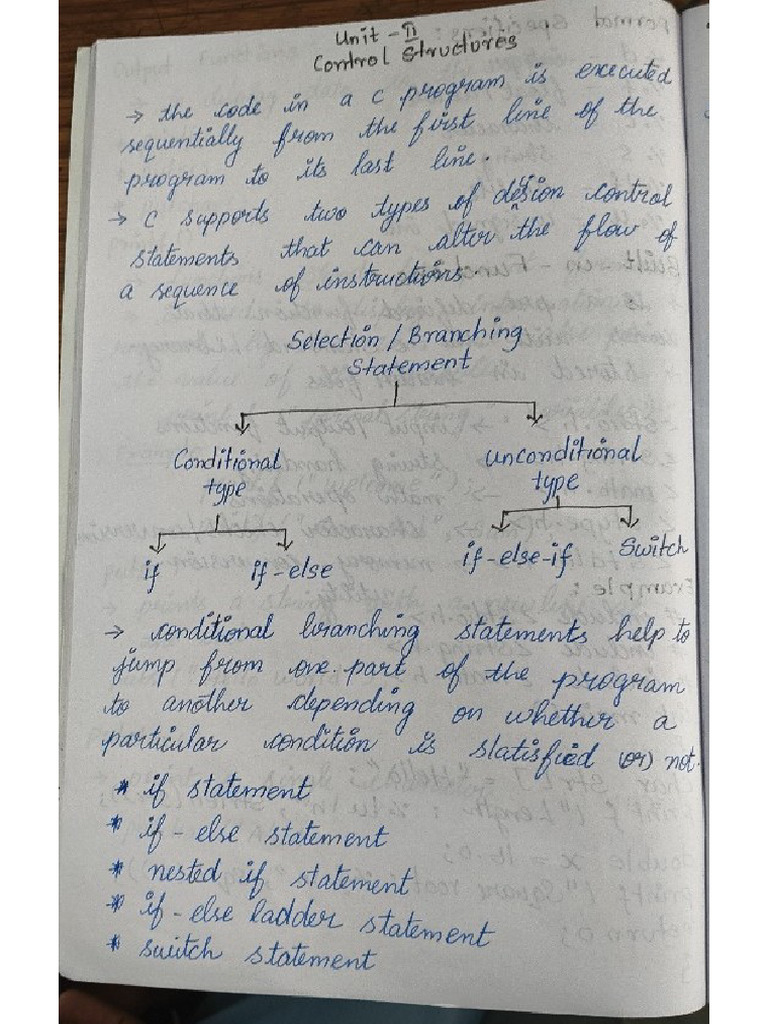 Unit - II
Control Structures
→ the code in a c program is executed
sequentially from the first line of the
program to its last line.
→ c supports two types of desion control
statements that can alter the flow of
a sequence of instructions.
Selection / Branching
Statement
Conditional
type
unconditional
type
if
if-else
if-else-if
Switch
→ conditional branching statements help to
jump from one part of the program
to another depending on whether a
particular condition is slatisfied (or) not.
* if statement
* if-else statement
* nested if statement
* if-else ladder statement
* switch statement